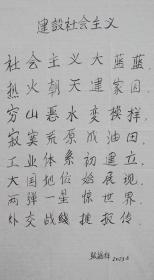 建設社会主义
社会主义大蓝蓝,
热火朝天建家园,
穷山恶水变模样,
寂寞荒原成油田,
工业体系初建立,
大国地位始展现,
两弹一星惊世界,
外交战线捷报传
2023.6